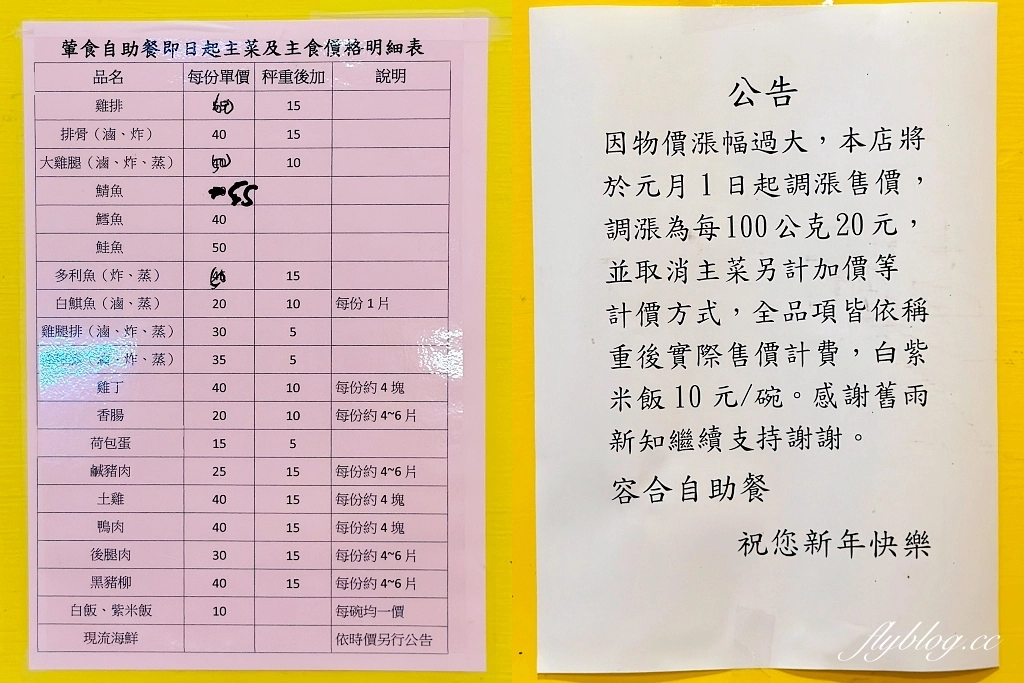 葷食自助餐即日起主菜及主食價格明細表
品名 每份單價 秤重後加 說明
雞排 15
排骨（滷、炸） 40 15
大雞腿（滷、炸、蒸） 10
鯖魚 55
鱈魚 40
鮭魚 50
多利魚（炸、蒸） 15
白鯕魚（滷、蒸） 20 10 每份1片
雞腿排（滷、炸、蒸） 30 5
、炸、蒸） 35 5
雞丁 40 10 每份約4塊
香腸 20 10 每份約4~6片
荷包蛋 15 5
鹹豬肉 25 15 每份約4~6片
土雞 40 15 每份約4塊
鴨肉 40 15 每份約4塊
後腿肉 30 15 每份約4~6片
黑豬柳 40 15 每份約4~6片
白飯、紫米飯 10 每碗均一價
現流海鮮 依時價另行公告
公告
因物價漲幅過大，本店將
於元月1日起調漲售價，
調漲為每100公克20元，
並取消主菜另計加價等
計價方式，全品項皆依稱
重後實際售價計費，白紫
米飯10元/碗。感謝舊雨
新知繼續支持謝謝。
容合自助餐
祝您新年快樂
flyblog.cc